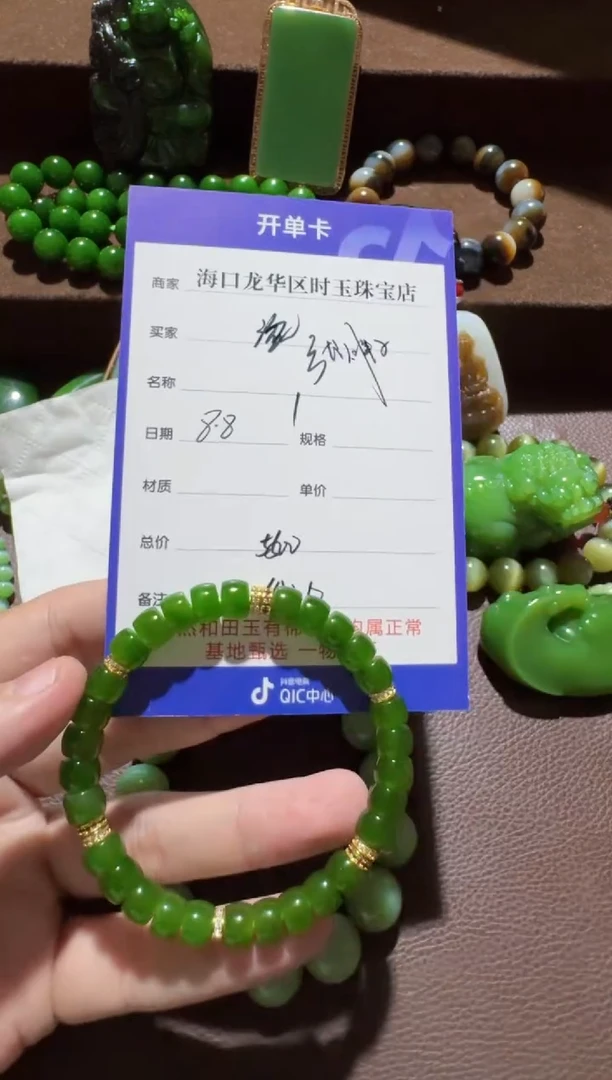 开单卡
商家 海口龙华区时玉珠宝店
买家
名称
日期 8.8 规格
材质 单价
总价
备注
然和田玉有棉 均属正常
基地甄选 一物
抖音电商
QIC中心